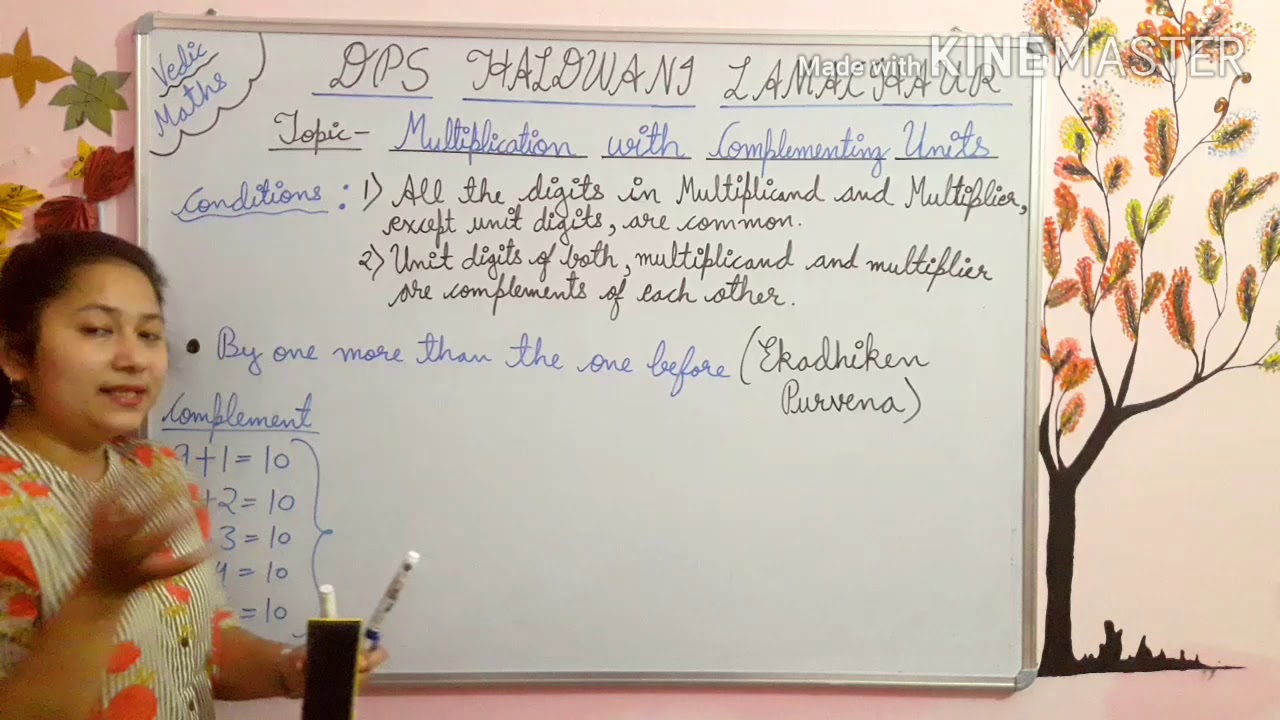 Vedic
Maths
DPS HALDWANI LAMACHAUR
Made with KINEMASTER
Topic- Multiplication with Complementing Units
Conditions: 1) All the digits in Multiplicand and Multiplier,
except unit digits, are common.
2) Unit digits of both, multiplicand and multiplier
are complements of each other.
• By one more than the one before (Ekadhiken
Purvena)
Complement
9+1=10
+2=10
3=10
4=10
=10